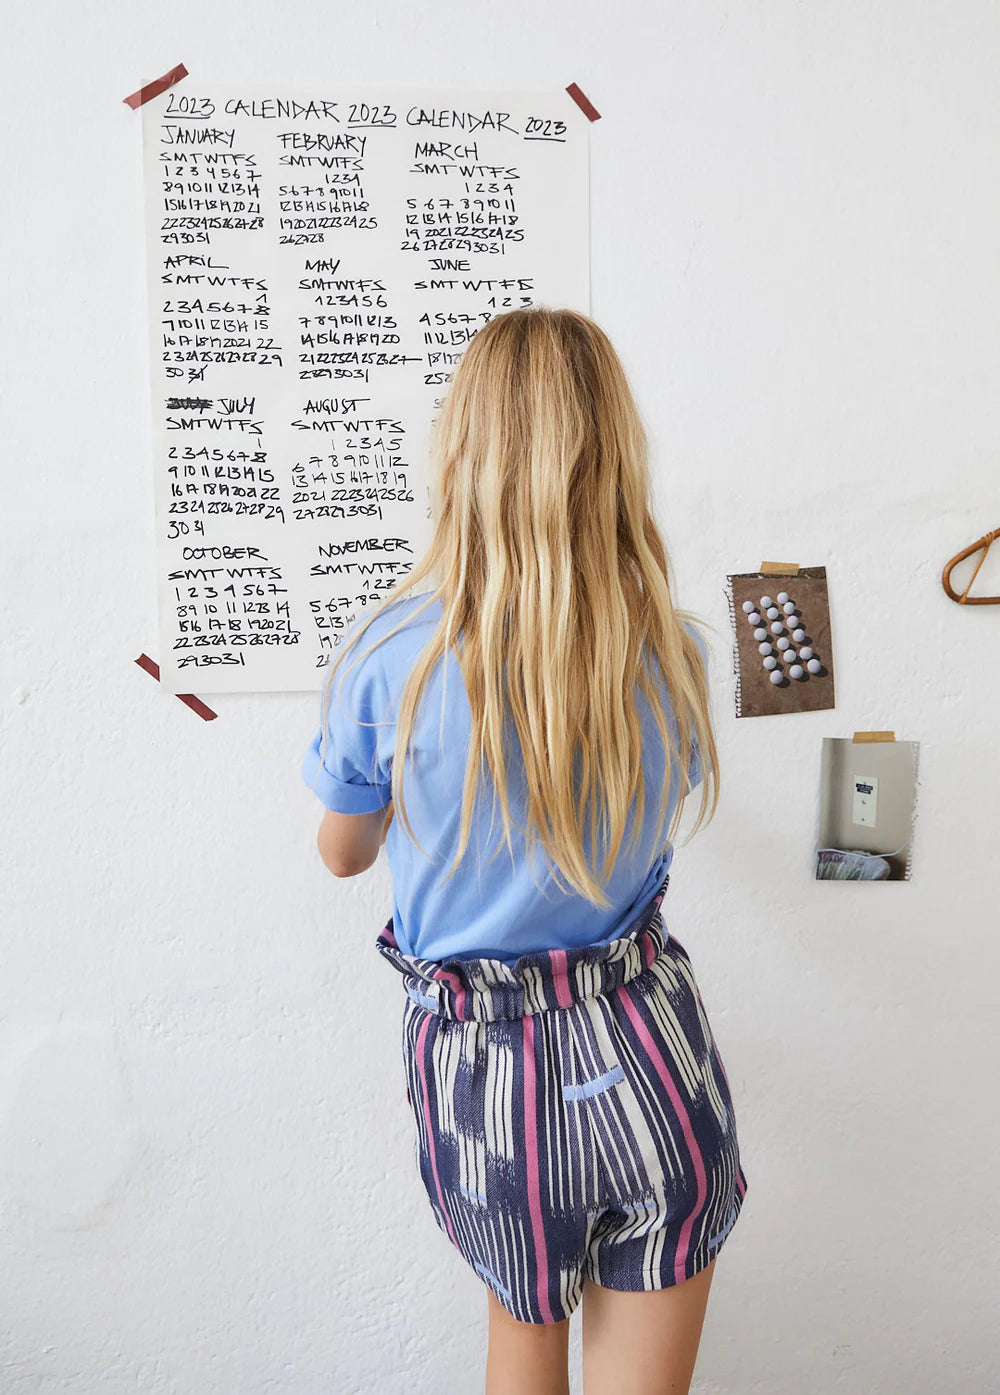 2023 CALENDAR 2023 CALENDAR 2023
JANUARY
S M T W T F S
1 2 3 4 5 6 7
8 9 10 11 12 13 14
15 16 17 18 19 20 21
22 23 24 25 26 27 28
29 30 31
FEBRUARY
S M T W T F S
1 2 3 4
5 6 7 8 9 10 11
12 13 14 15 16 17 18
19 20 21 22 23 24 25
26 27 28
MARCH
S M T W T F S
1 2 3 4
5 6 7 8 9 10 11
12 13 14 15 16 17 18
19 20 21 22 23 24 25
26 27 28 29 30 31
APRIL
S M T W T F S
1
2 3 4 5 6 7 8
9 10 11 12 13 14 15
16 17 18 19 20 21 22
23 24 25 26 27 28 29
30
MAY
S M T W T F S
1 2 3 4 5 6
7 8 9 10 11 12 13
14 15 16 17 18 19 20
21 22 23 24 25 26 27
28 29 30 31
JUNE
S M T W T F S
1 2 3
4 5 6 7 8
11 12 13 14
18 19
25
JULY
S M T W T F S
1
2 3 4 5 6 7 8
9 10 11 12 13 14 15
16 17 18 19 20 21 22
23 24 25 26 27 28 29
30 31
AUGUST
S M T W T F S
1 2 3 4 5
6 7 8 9 10 11 12
13 14 15 16 17 18 19
20 21 22 23 24 25 26
27 28 29 30 31
OCTOBER
S M T W T F S
1 2 3 4 5 6 7
8 9 10 11 12 13 14
15 16 17 18 19 20 21
22 23 24 25 26 27 28
29 30 31
NOVEMBER
S M T W T F S
1 2 3
5 6 7 8 9
12 13
19 20